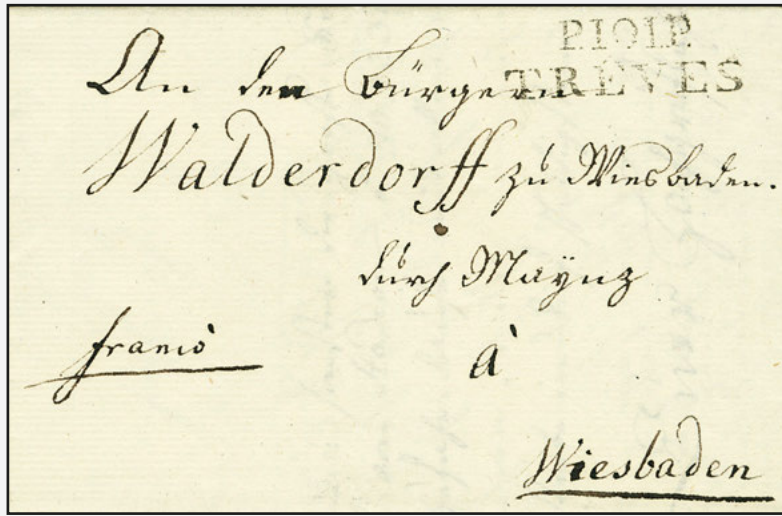 P.101.P.
TRÈVES
An den Bürgern
Walderdorff zu Wiesbaden.
durch Maÿnz
franco
à
Wiesbaden